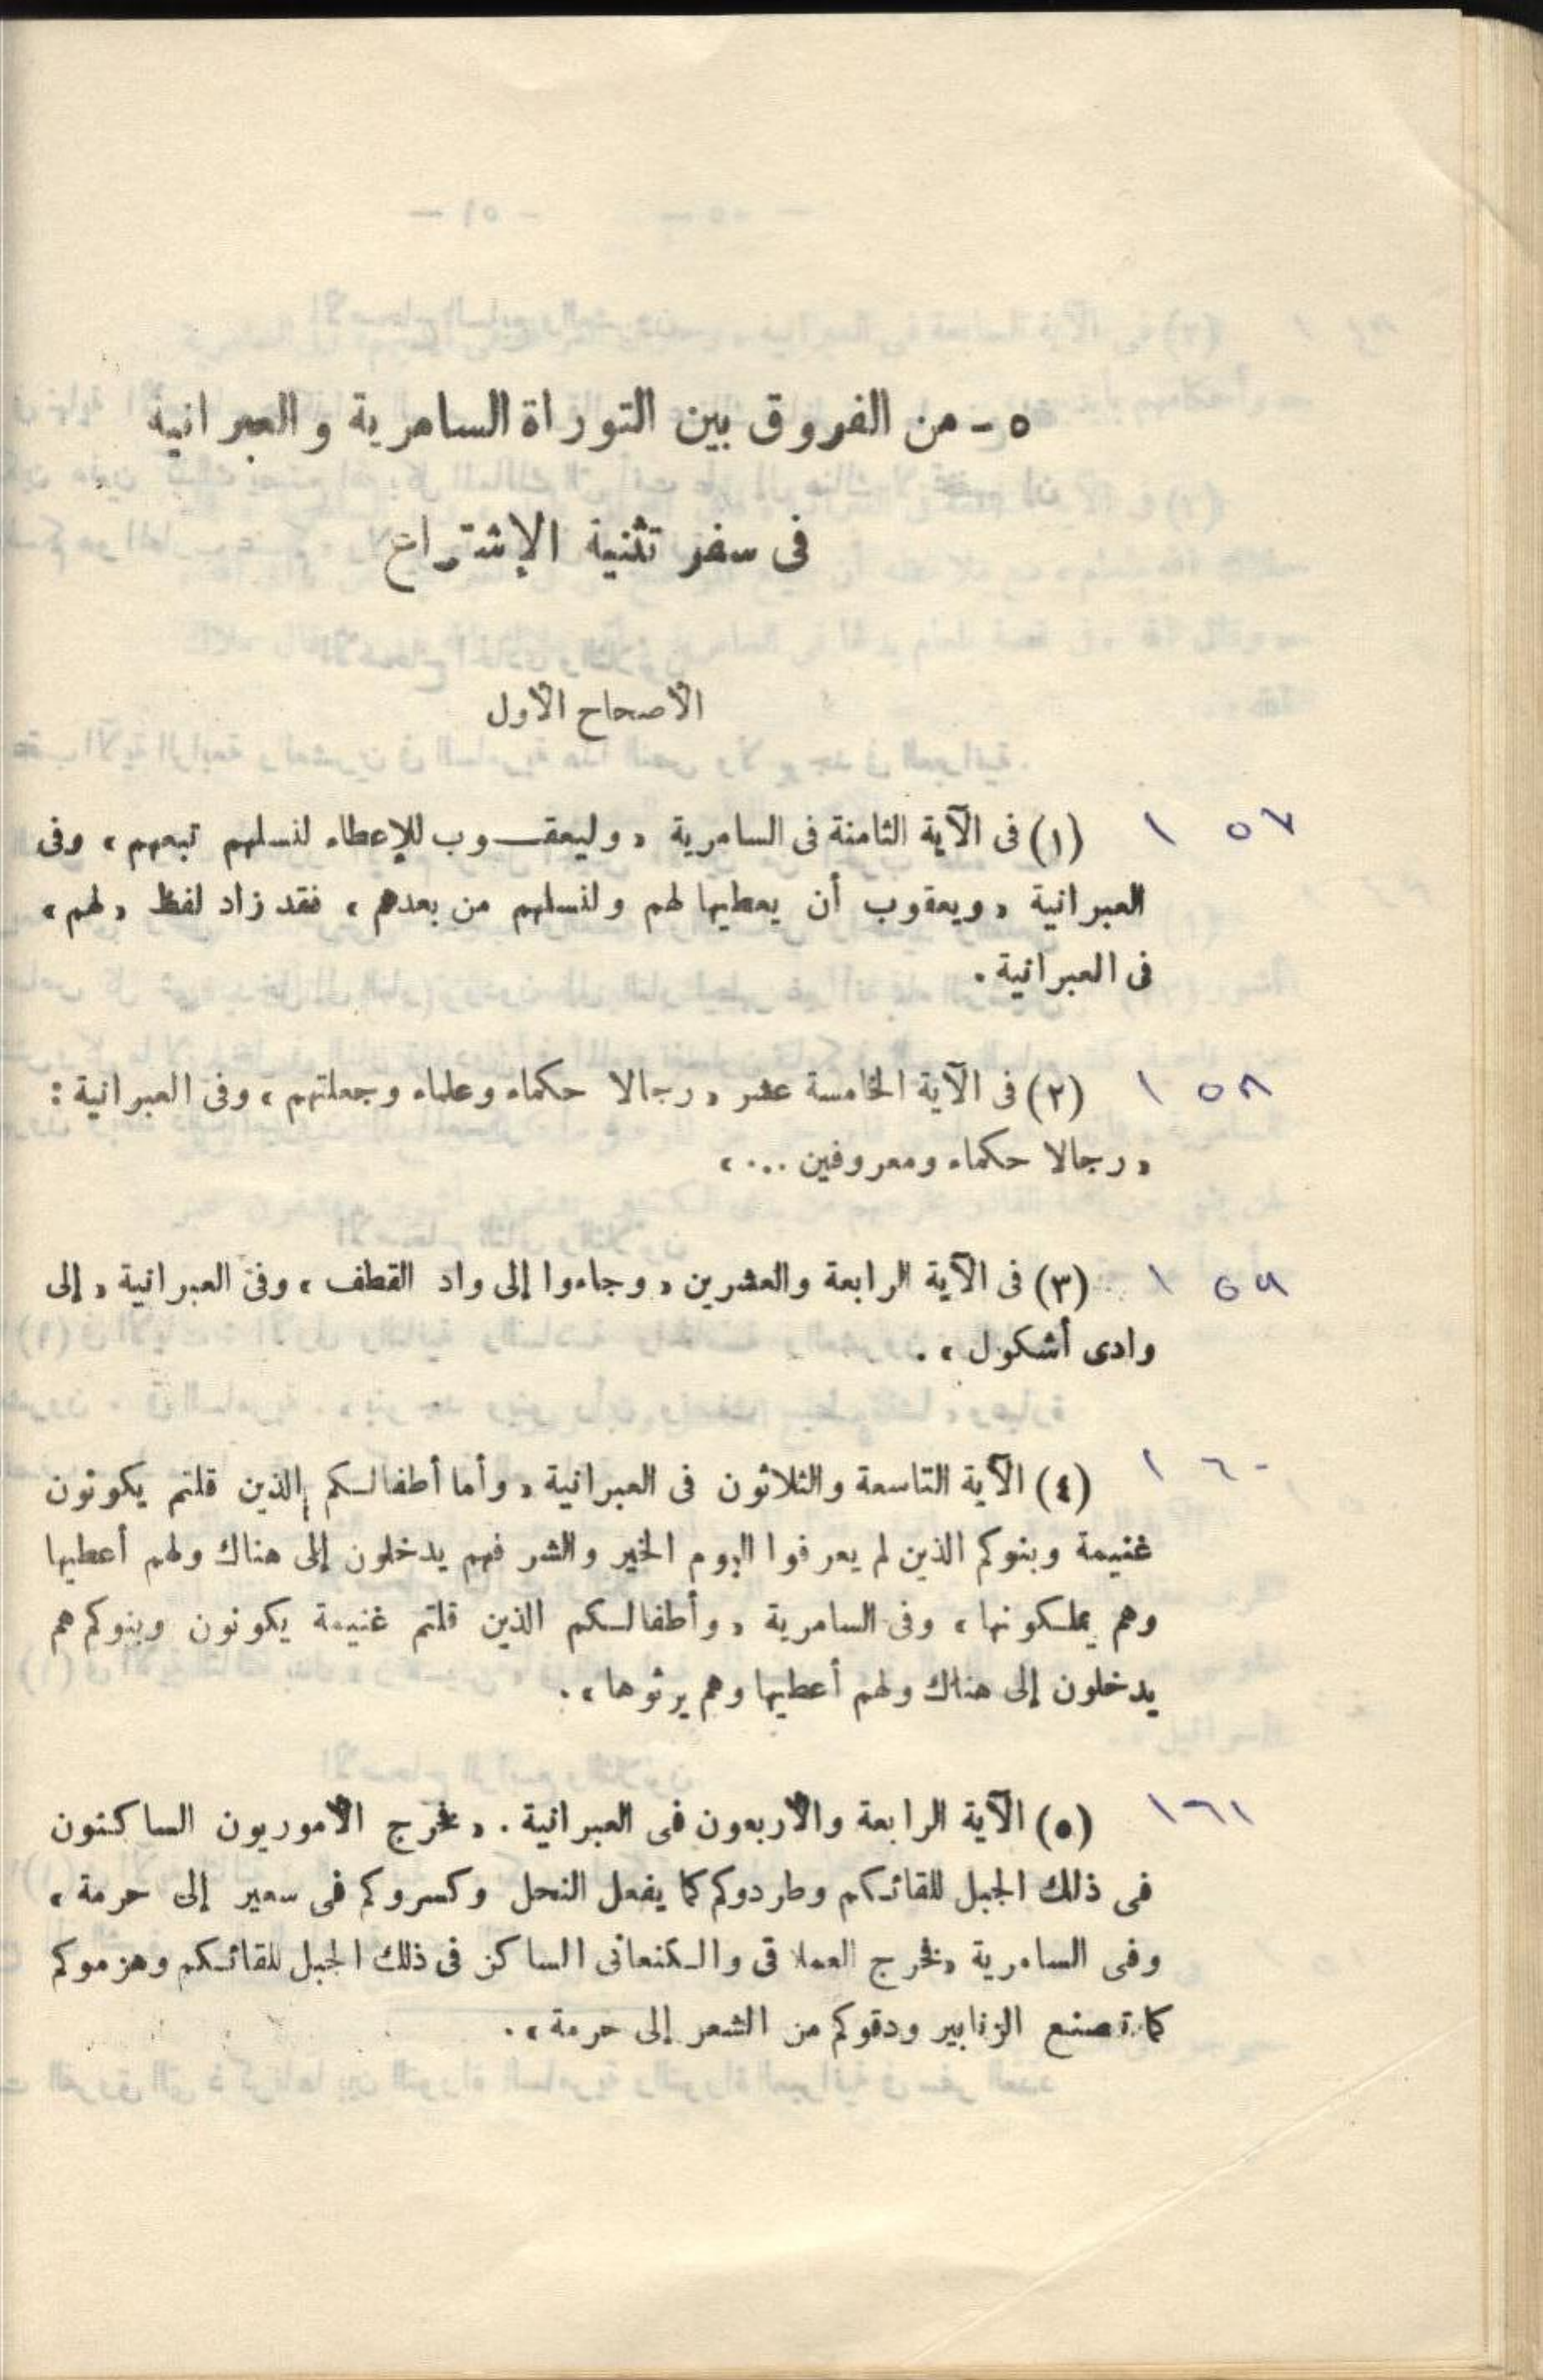 ٥ - من الفروق بين التوراة السامرية والعبرانية
فى سفر تثنية الإشتراع
الأصحاح الأول
١٥٧ (١) فى الآية الثامنة فى السامرية « وليعقـــوب للإعطاء لنسلهم تبعهم » وفى
العبرانية « ويعقوب أن يعطيها لهم ولنسلهم من بعدهم » فقد زاد لفظ « لهم »
فى العبرانية .
١٥٨ (٢) فى الآية الخامسة عشر « رجالا حكماء وعلماء وجعلتهم » وفى العبرانية :
« رجالا حكماء ومعروفين ... »
١٥٩ (٣) فى الآية الرابعة والعشرين « وجاءوا إلى واد القطف » وفى العبرانية « إلى
وادى أشكول » .
١٦٠ (٤) الآية التاسعة والثلاثون فى العبرانية « وأما أطفالكم الذين قلتم يكونون
غنيمة وبنوكم الذين لم يعرفوا اليوم الخير والشر فهم يدخلون إلى هناك ولهم أعطيها
وهم يملكونها » وفى السامرية « وأطفالكم الذين قلتم غنيمة يكونون وبنوكم هم
يدخلون إلى هناك ولهم أعطيها وهم يرثوها » .
١٦١ (٥) الآية الرابعة والأربعون فى العبرانية . « فخرج الأموريون الساكنون
فى ذلك الجبل للقائكم وطردوكم كما يفعل النحل وكسروكم فى سعير إلى حرمة »
وفى السامرية « فخرج العملاقى والكنعانى الساكن فى ذلك الجبل للقائكم وهزموكم
كما تصنع الزنابير ودقوكم من الشعر إلى حرمة » .